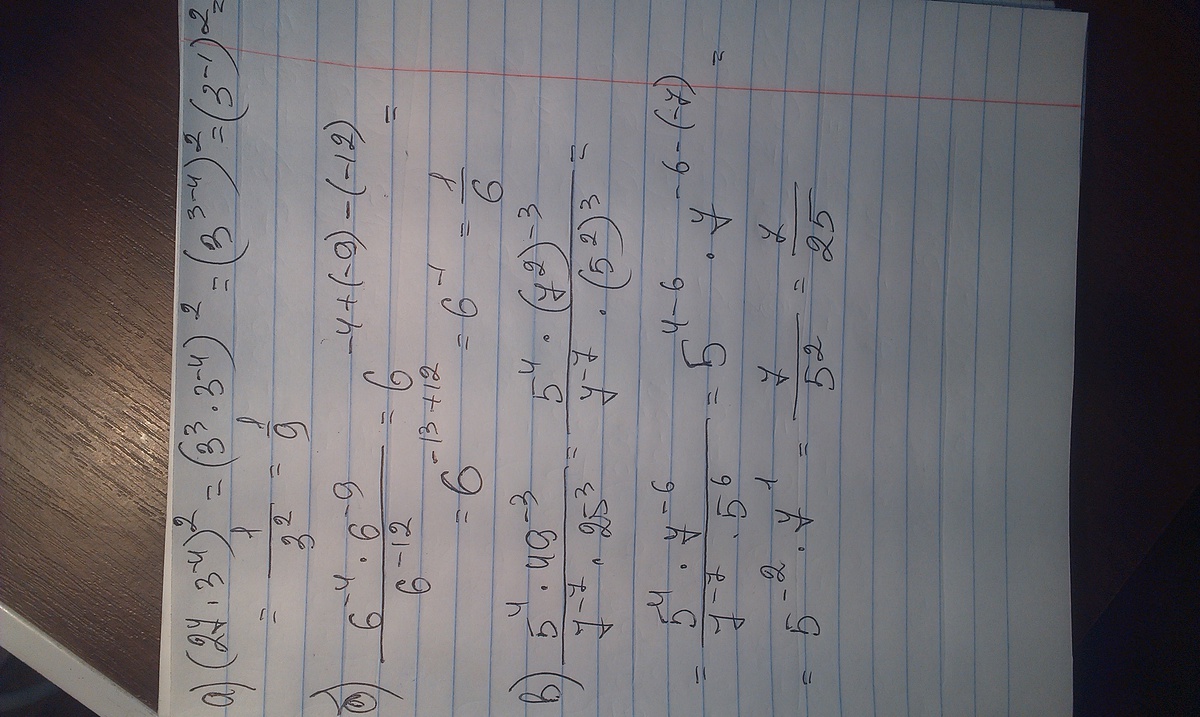 а) (27·3⁻⁴)² = (3³·3⁻⁴)² = (3³⁻⁴)² = (3⁻¹)² =
= 1/3² = 1/9
б) (6⁻⁴·6⁻⁹)/6⁻¹² = 6⁻⁴⁺⁽⁻⁹⁾⁻⁽⁻¹²⁾ =
= 6⁻¹³⁺¹² = 6⁻¹ = 1/6
в) (5⁴·49⁻³)/(7⁻⁷·25³) = (5⁴·(7²)⁻³)/(7⁻⁷·(5²)³) =
= (5⁴·7⁻⁶)/(7⁻⁷·5⁶) = 5⁴⁻⁶·7⁻⁶⁻⁽⁻⁷⁾ =
= 5⁻²·7¹ = 7/5² = 7/25